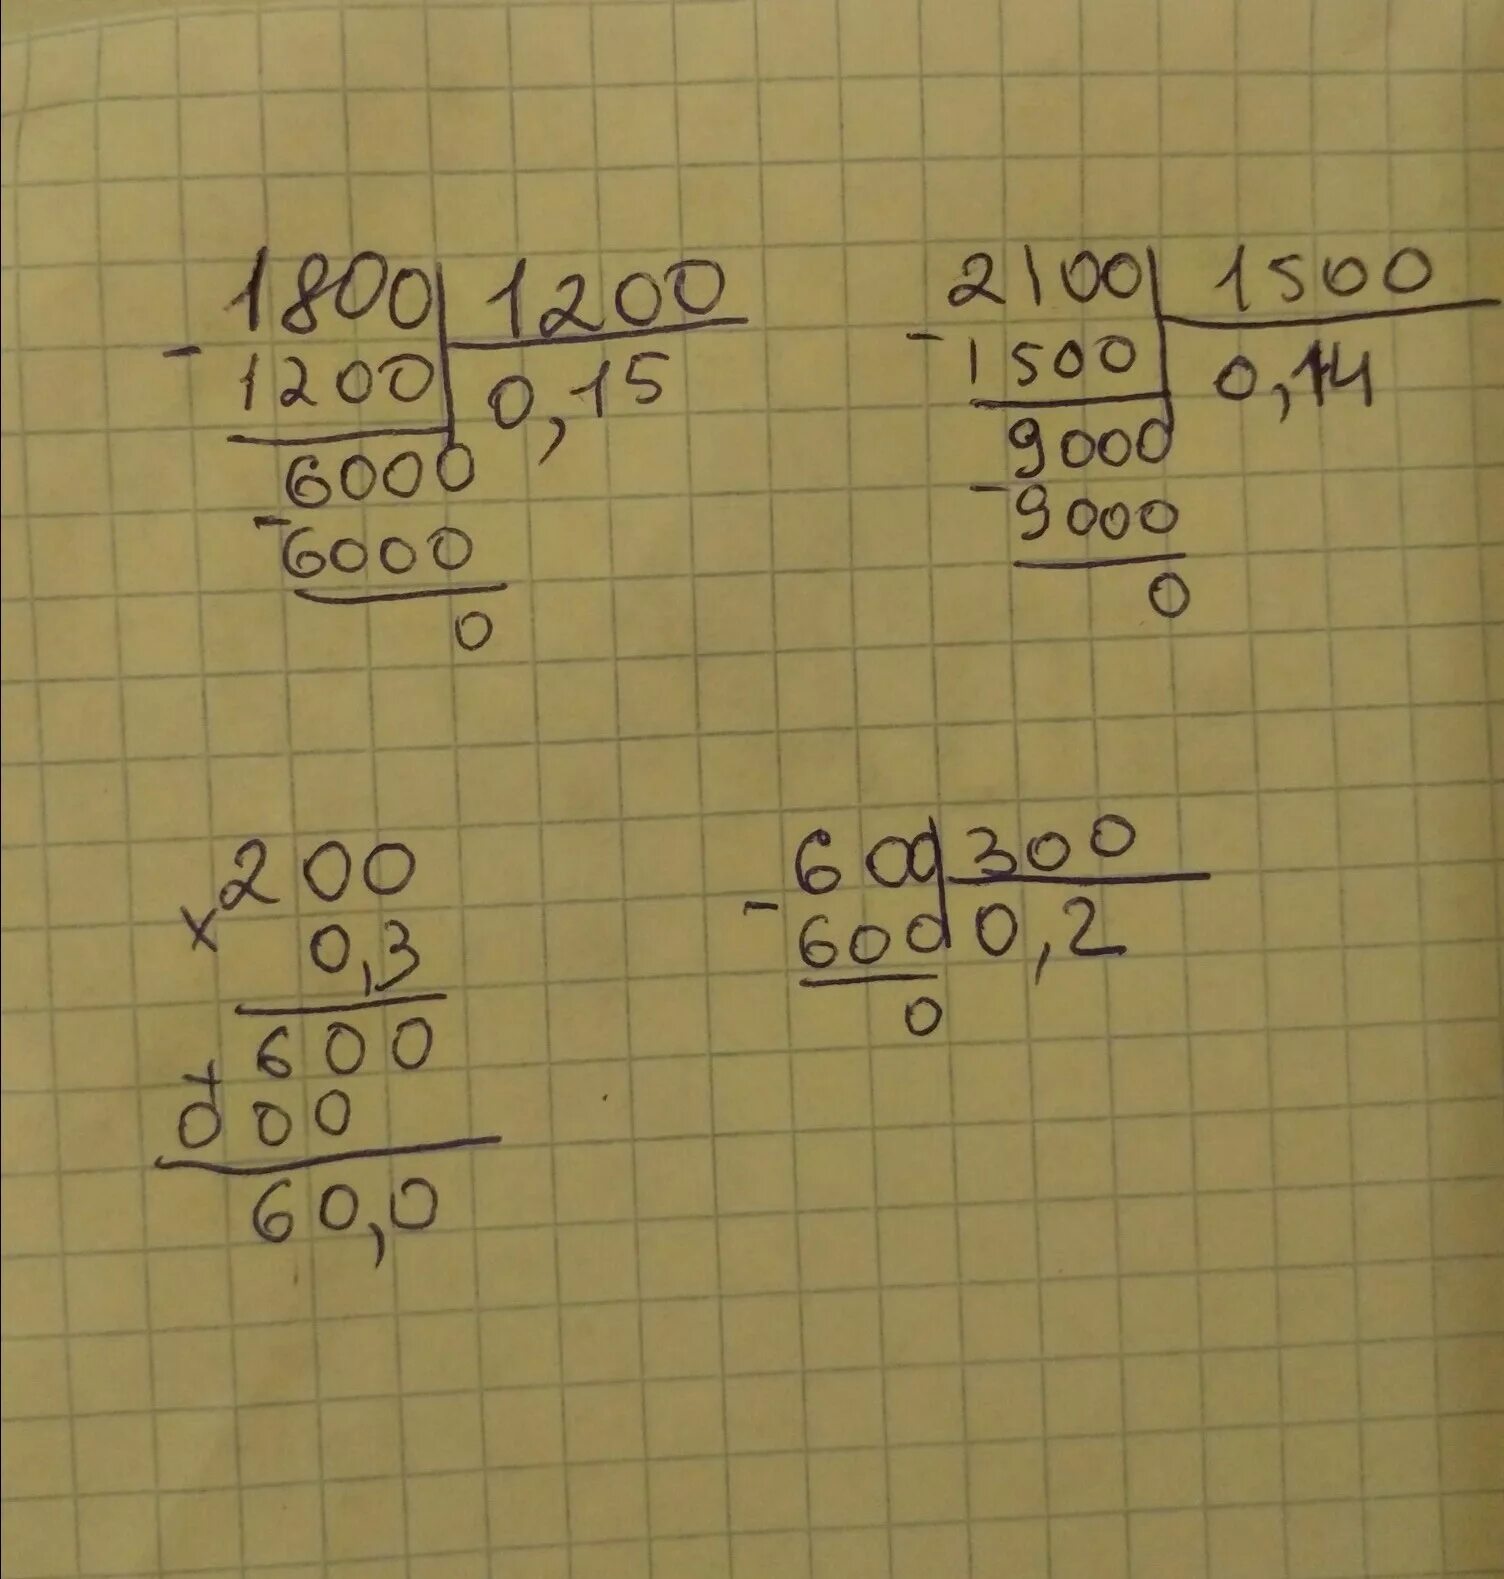 1800 1200
- 1200 0,15
6000
- 6000
0
2100 1500
- 1500 0,14
9000
- 9000
0
200
x 0,3
600
+ 000
60,0
600 300
- 600 0,2
0